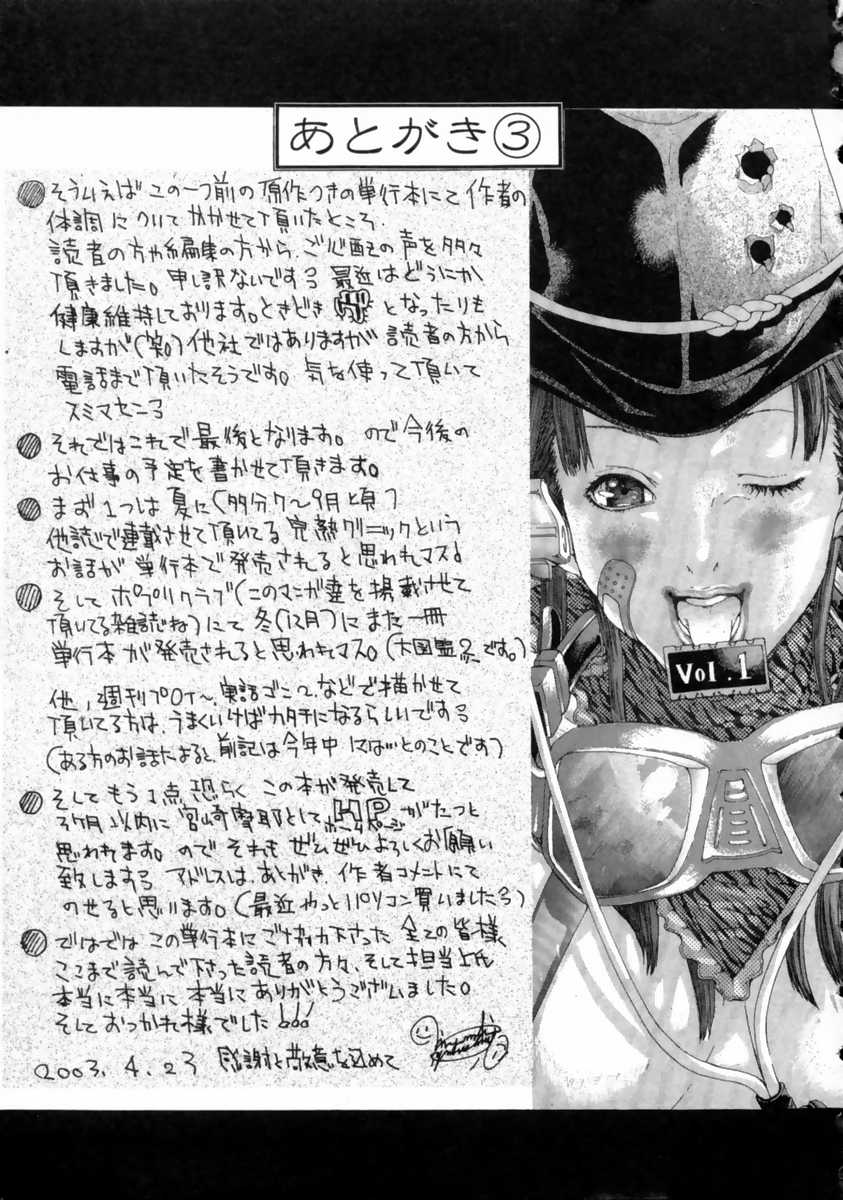 あとがき③
そういえば この一つ前の原作つきの単行本にて作者の
体調についてかかせて頂いたところ.
読者の方や編集の方から、ご心配の声を多々
頂きました。申し訳ないです 最近はどうにか
健康維持しております。ときどき となったりも
しますが(笑。)他社ではありますが読者の方から
電話まで頂いたそうです。気を使って頂いて
スミマセン
それではこれで最後となります。ので今後の
お仕事の予定を書かせて頂きます。
まず1つは夏に(多分7〜9月頃)
他誌で連載させて頂いてる完熟クリニックという
お話が単行本で発売されると思われマス
そしてポプリクラブ(このマンガ達を掲載させて
頂いてる雑誌ね)にて冬(12月)にまた一冊
単行本が発売されると思われマス。(です。)
他,週刊プロ 実話 などで描かせて
頂いてる方は、うまくいけばカタチになるらしいです
(ある方のお話によると、前記は今年中にはとのことです)
そしてもう1点 恐らく この本が発売して
3ヶ月以内に宮崎摩耶としてHPがたつと
ホームページ
思われます。ので それも ぜひぜひよろしくお願い
致します アドレスは、あとがき、作者コメントにて
のせると思います。(最近やっとパソコン買いました)
ではでは この単行本にご協力下さった 全ての皆様、
ここまで読んで下さった読者の方々、そして担当氏
本当に本当に 本当にありがとうございました。
そしておつかれ様でした!!!
2003.4.23 感謝と敬意を込めて
Vol.1